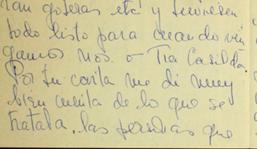 ran goteras etc y tuviesen
todo listo para cuando vin
gamos nos. — Tia Casilda
Por tu carta me di muy
bien cuenta de lo que se
trataba, las personas que